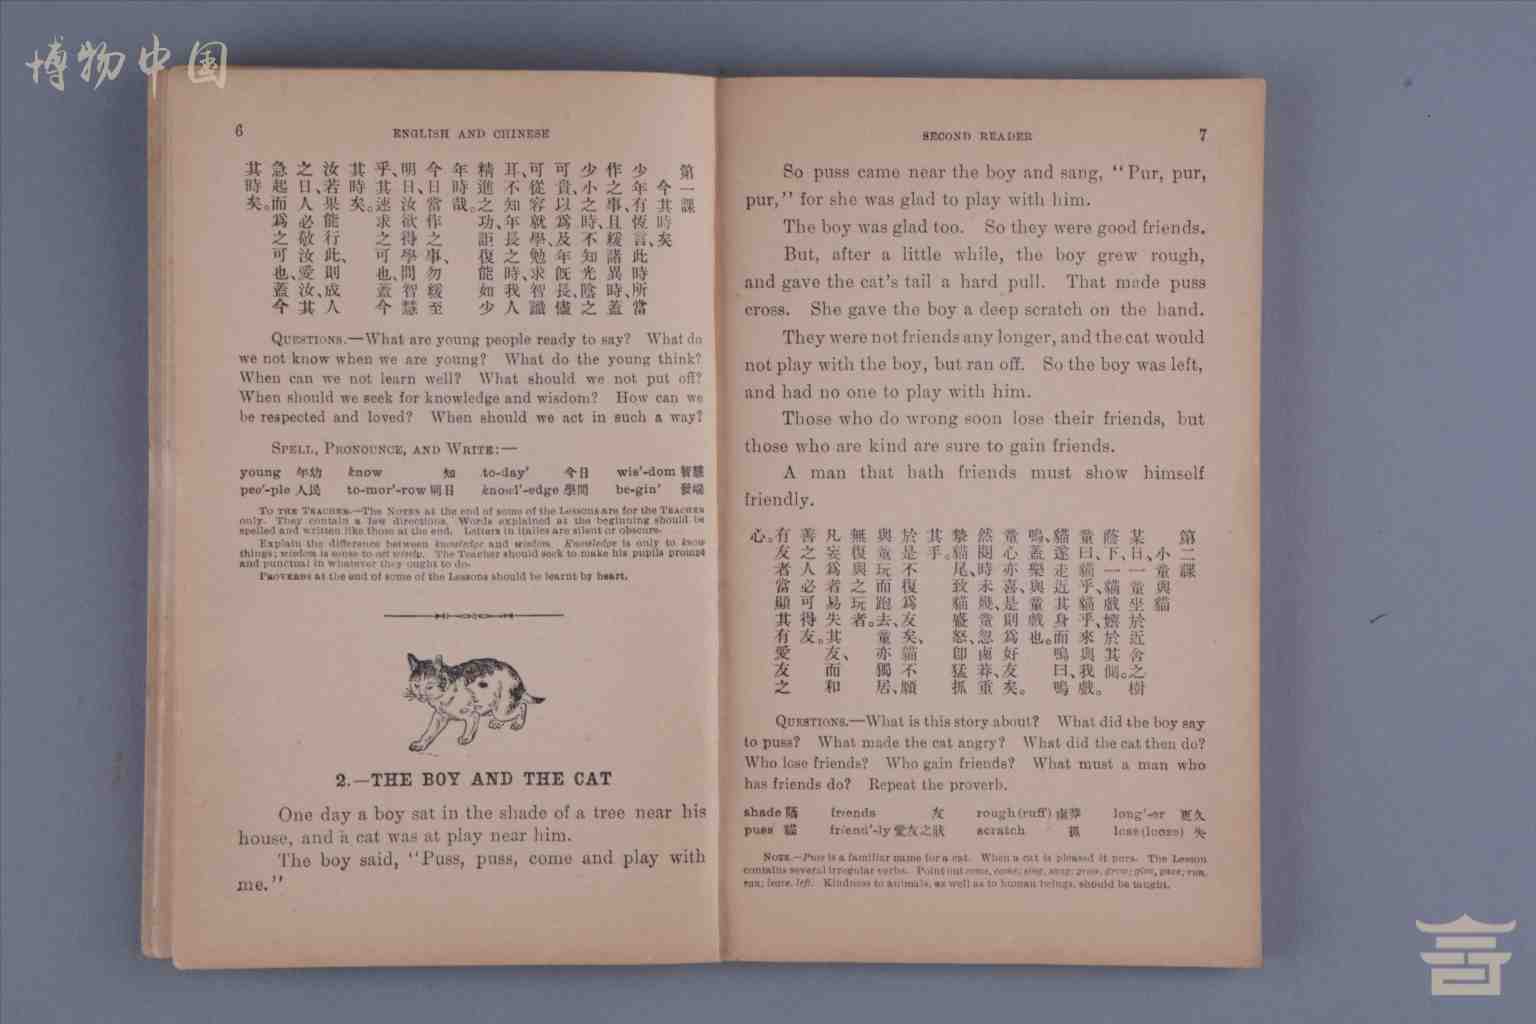 博物中国
6
ENGLISH AND CHINESE
第一課
今其時矣
少年有恆言、此時所當
作之事、且緩諸異時、蓋
少小之時、不知光陰之
可貴、以爲及年旣長、儘
可從容就學、勉求智識
耳、不知年長之時、我人
精進之功、詎復能如少
年時哉。
今日當作之事、勿緩至
明日、汝欲得學問智慧
乎、其速求之可也、蓋今
其時矣。
汝若果能行此、則成人
之日、人必敬汝、愛汝、其
急起而爲之可也、蓋今
其時矣。
QUESTIONS.—What are young people ready to say? What do
we not know when we are young? What do the young think?
When can we not learn well? What should we not put off?
When should we seek for knowledge and wisdom? How can we
be respected and loved? When should we act in such a way?
SPELL, PRONOUNCE, AND WRITE:—
young 年幼 know 知 to-day' 今日 wis'-dom 智慧
peo'-ple 人民 to-mor'-row 明日 knowl'-edge 學問 be-gin' 發端
TO THE TEACHER.—The NOTES at the end of some of the Lessons are for the TEACHER
only. They contain a few directions. Words explained at the beginning should be
spelled and written like those at the end. Letters in italics are silent or obscure.
Explain the difference between knowledge and wisdom. Knowledge is only to know
things; wisdom is sense to act wisely. The Teacher should seek to make his pupils prompt
and punctual in whatever they ought to do.
PROVERBS at the end of some of the Lessons should be learnt by heart.
2.—THE BOY AND THE CAT
One day a boy sat in the shade of a tree near his
house, and a cat was at play near him.
The boy said, "Puss, puss, come and play with
me."
SECOND READER
7
So puss came near the boy and sang, "Pur, pur,
pur," for she was glad to play with him.
The boy was glad too. So they were good friends.
But, after a little while, the boy grew rough,
and gave the cat's tail a hard pull. That made puss
cross. She gave the boy a deep scratch on the hand.
They were not friends any longer, and the cat would
not play with the boy, but ran off. So the boy was left,
and had no one to play with him.
Those who do wrong soon lose their friends, but
those who are kind are sure to gain friends.
A man that hath friends must show himself
friendly.
第二課
小童與貓
某日、一童坐於近舍之樹
蔭下、一貓戲嬉於其側。
童曰、貓乎、貓乎、來與我戲。
貓遂走近其身而鳴曰、鳴
鳴、蓋樂與童戲也。
童心亦喜、是則爲好友矣。
然閱時未幾、童忽鹵莽、重
摯貓尾、致貓盛怒、卽猛抓
其手。
於是不復爲友矣、貓不願
與童玩而跑去、童亦獨居、
無復與之玩者。
凡妄爲者易失其友、而和
善之人必可得友。
有友者當顯其有愛友之
心。
QUESTIONS.—What is this story about? What did the boy say
to puss? What made the cat angry? What did the cat then do?
Who lose friends? Who gain friends? What must a man who
has friends do? Repeat the proverb.
shade 蔭 friends 友 rough (ruff) 鹵莽 long'-er 更久
puss 貓 friend'-ly 愛友之狀 scratch 抓 lose (looze) 失
NOTE.—Puss is a familiar name for a cat. When a cat is pleased it purs. The Lesson
contains several irregular verbs. Point out come, came; sing, sang; grow, grew; give, gave; run,
ran; leave, left. Kindness to animals, as well as to human beings, should be taught.